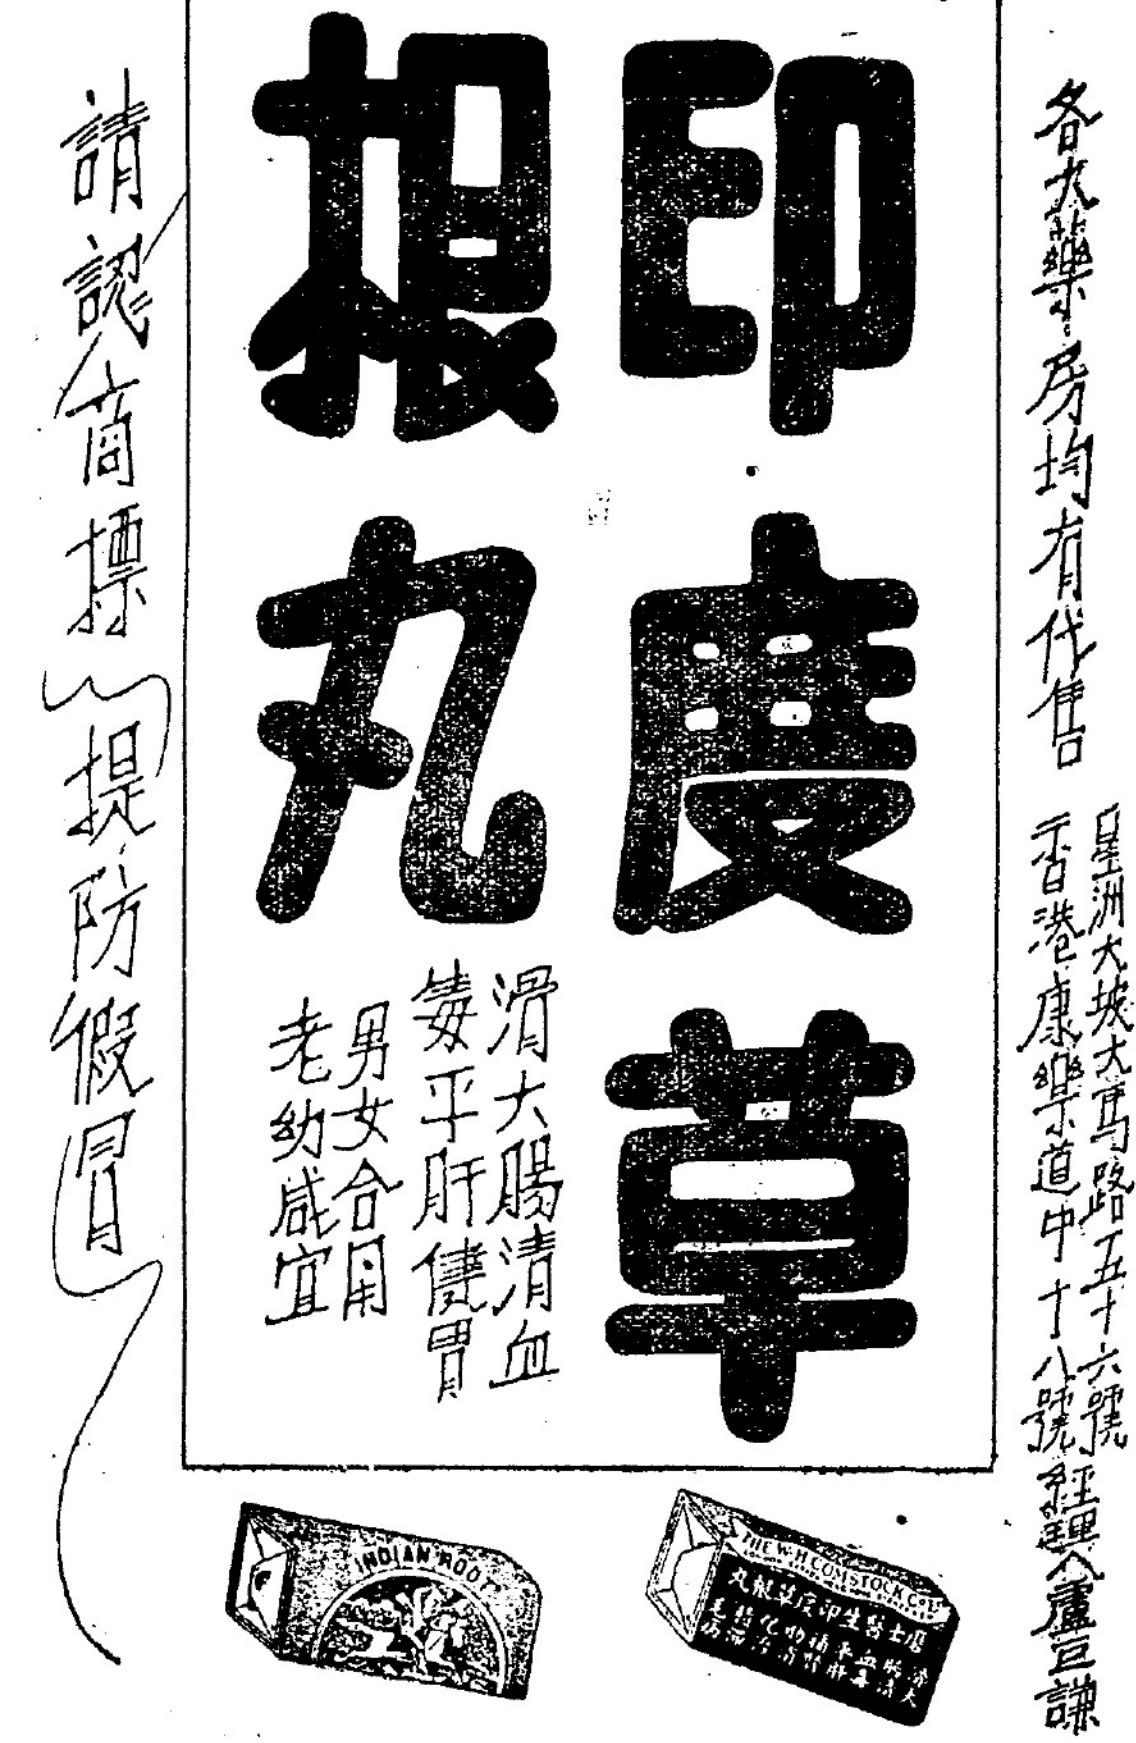 各大藥房均有代售
星洲大坡大馬路五十六號
香港康樂道中十八號
經理人盧亘謙
印度草
根丸
滑大腸清血
毒平肝健胃
男女合用
老幼咸宜
請認商標提防假冒
INDIAN ROOT
THE W·H·COMSTOCK Co LTD